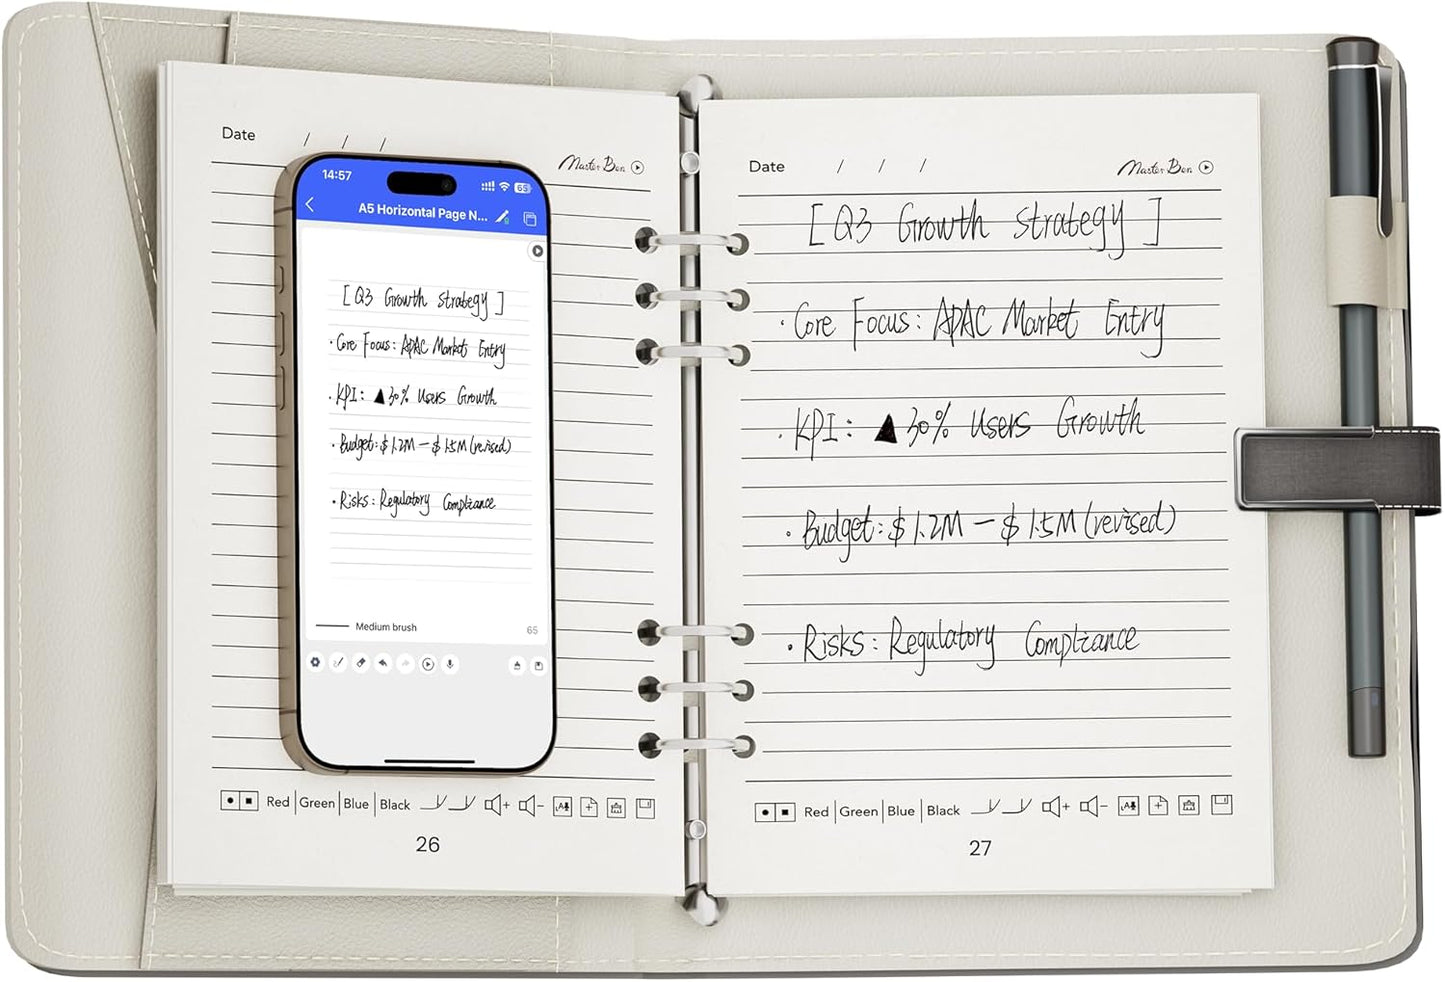 Date / / /
Master Ben
14:57
65
A5 Horizontal Page N...
[ Q3 Growth Strategy ]
· Core Focus: APAC Market Entry
· KPI: ▲30% Users Growth
· Budget: $1.2M — $1.5M (revised)
· Risks: Regulatory Compliance
Medium brush
65
Red | Green | Blue | Black
26
Date / / /
Master Ben
[ Q3 Growth Strategy ]
· Core Focus: APAC Market Entry
· KPI: ▲30% Users Growth
· Budget: $1.2M — $1.5M (revised)
· Risks: Regulatory Compliance
Red | Green | Blue | Black
27